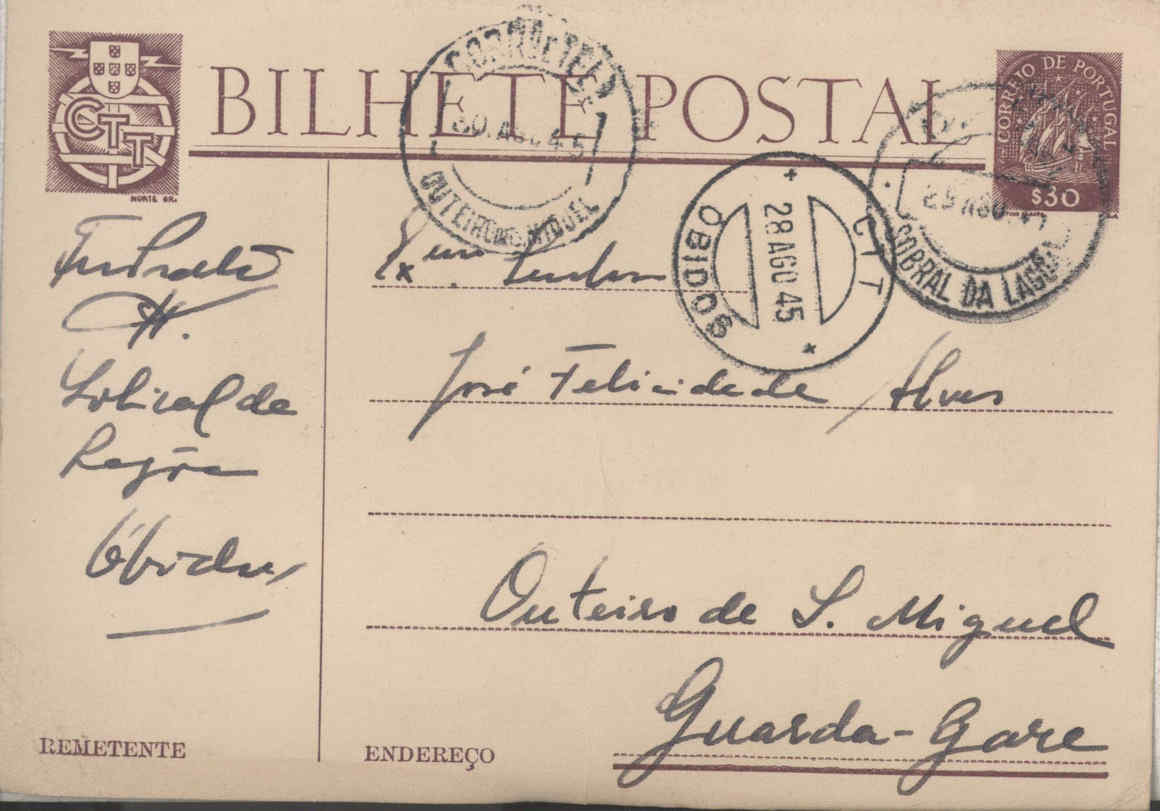 CTT
NORTE GR.
BILHETE POSTAL
CORREIO DE PORTUGAL
$30
CORRO E TELEG
30 AGO. 45
OUTEIRO DE S. MIGUEL
CTT
28 AGO 45
ÓBIDOS
29 AGO. 45
SOBRAL DA LAGOA
Sobral da
Lagôa
Óbidos
Exmo. Senhor
José Felicidade Alves
Outeiro de S. Miguel
Guarda-Gare
REMETENTE
ENDEREÇO